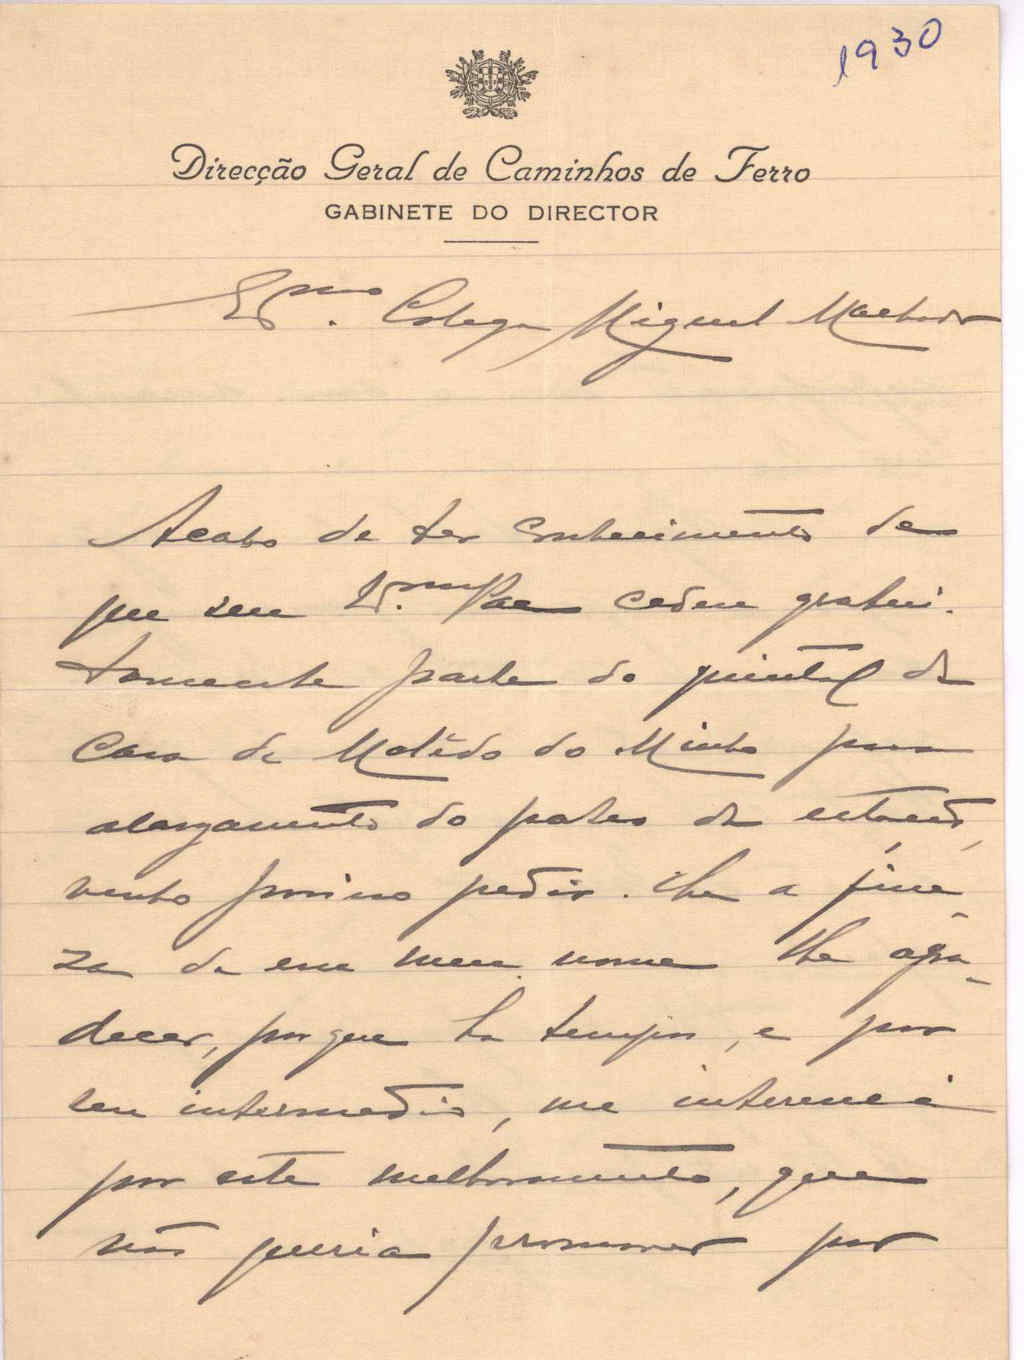 1930
Direcção Geral de Caminhos de Ferro
GABINETE DO DIRECTOR
Exmo. Colega Miguel Machado
Acabo de ter conhecimento de
que seu Exmo. Pae cedeu gratui-
tamente parte do quintal da
Casa de Molêdo do Minho para
alargamento do pateo da estação,
venho por isso pedir-lhe a fine-
za de em meu nome lhe agra-
decer, porque ha tempos, e por
seu intermedio, me interessei
por este melhoramento, que
não queria promover por